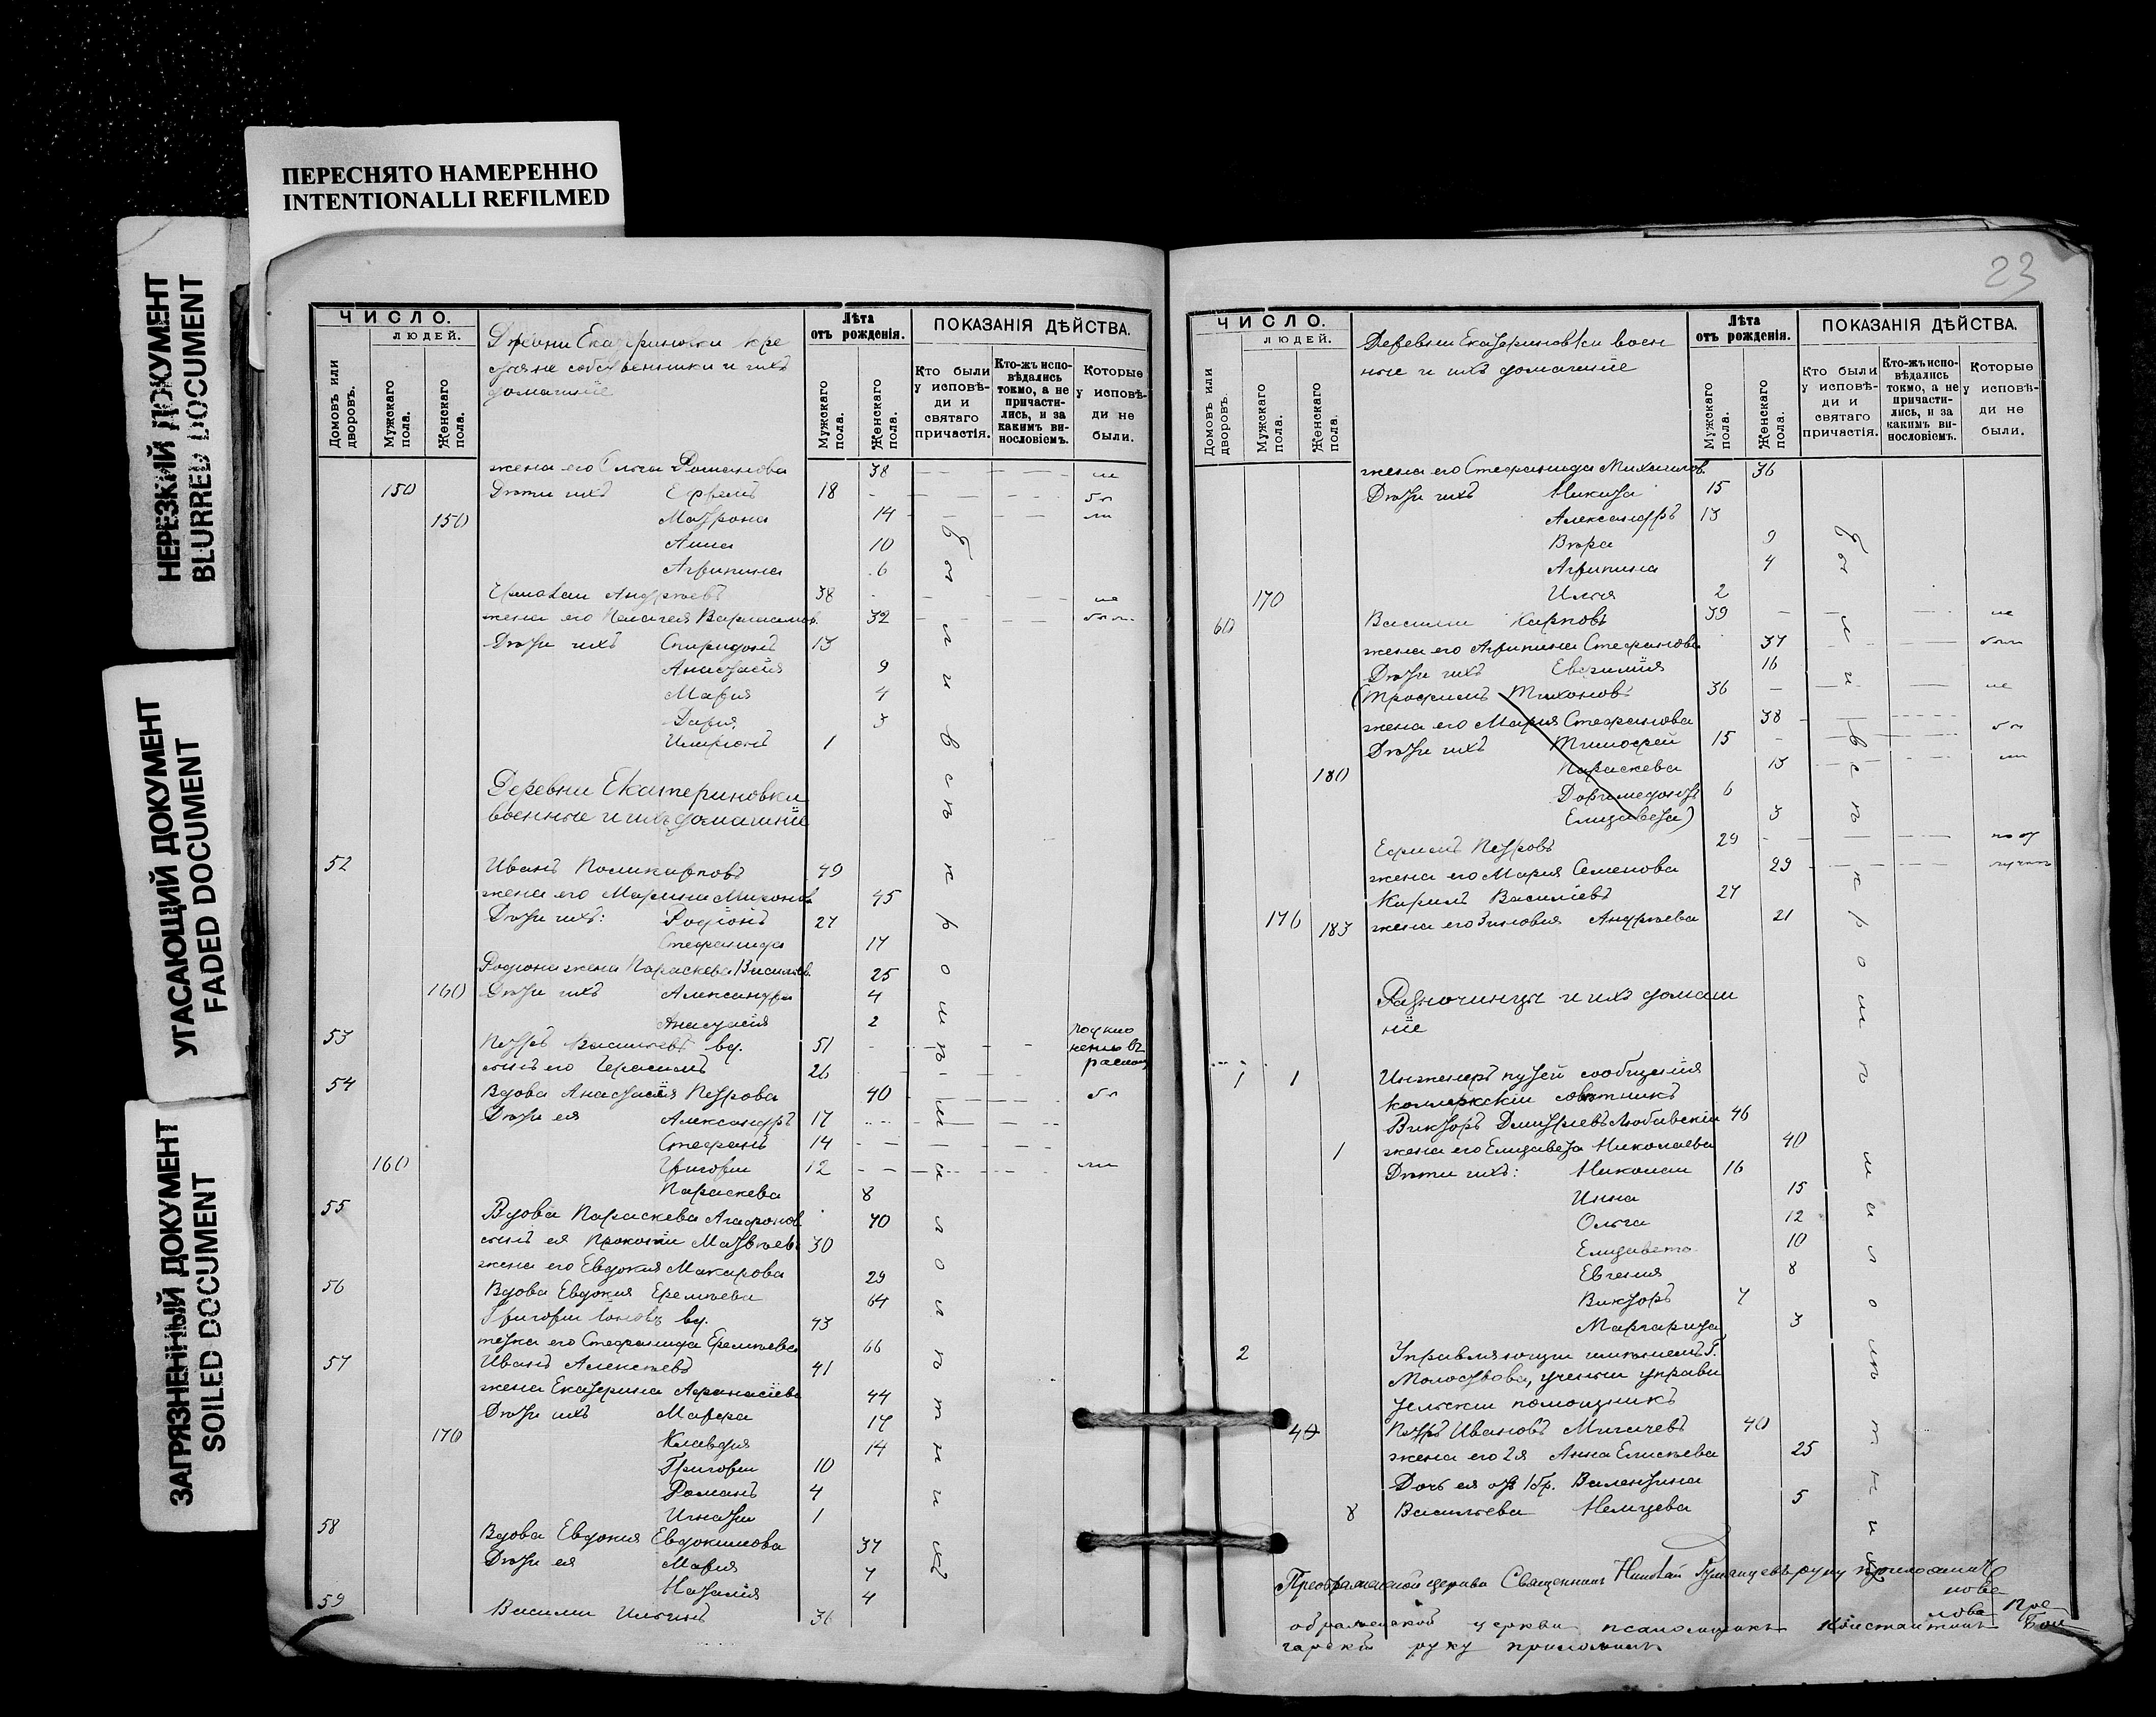 ПЕРЕСНЯТО НАМЕРЕННО
INTENTIONALLI REFILMED
НЕРЕЗКИЙ ДОКУМЕНТ
BLURRED DOCUMENT
УГАСАЮЩИЙ ДОКУМЕНТ
FADED DOCUMENT
ЗАГРЯЗНЕННЫЙ ДОКУМЕНТ
SOILED DOCUMENT
ЧИСЛО.
ЛЮДЕЙ.
Домовъ или дворовъ.
Мужскаго пола.
Женскаго пола.
Деревни Екатериновки кре
стьяне собственники и ихъ
домашніе
Лѣта отъ рожденія.
Мужскаго пола.
Женскаго пола.
ПОКАЗАНІЯ ДѢЙСТВА.
Кто были у исповѣди и святаго причастія.
Кто-жъ исповѣдались токмо, а не причастились, и за какимъ винословіемъ.
Которые у исповѣди не были.
жена его Ольга Романова 38 не
150 Дѣти ихъ Ефремъ 18 бы
150 Матрона 14 ли
Анна 10
Агрипина 6
Андреевъ 38 не
жена его Пелагея Варлаамов. 32 были
Дѣти ихъ Спиридонъ 13
Анастасія 9
Марія 4
Дарія 3
Иларіонъ 1
Деревни Екатериновки
военные и ихъ домашніе
52 Иванъ Поликарповъ 49
жена его Марина Миронов 45
Дѣти ихъ: Родіонъ 27
Стефанида 17
Родіона жена Параскева Васильев. 25
160 Дѣти ихъ Александра 4
Анастасія 2
53 Петръ Васильевъ вд. 51
сынъ его Герасимъ 26
54 Вдова Анастасія Петрова 40 бы
Дѣти ея Александръ 17
Стефанъ 14
160 Григорій 12 ли
Параскева 8
55 Вдова Параскева Агафонов. 70
сынъ ея Прокопій Матвѣевъ 30
жена его Евдокия Макарова 29
56 Вдова Евдокия Еремѣева 64
Григорій Іоновъ вд. 43
тетка его Стефанида Еремѣева 66
57 Иванъ Алексѣевъ 41
жена Екатерина Афанасіева 44
Дѣти ихъ Марфа 17
170 Клавдия 14
Григорій 10
Романъ 4
Игнатій 1
58 Вдова Евдокия Евдокимова 37
Дѣти ея Марія 7
Наталія 4
59 Василій Ильинъ 36
23
ЧИСЛО.
ЛЮДЕЙ.
Домовъ или дворовъ.
Мужскаго пола.
Женскаго пола.
Деревни Екатериновки воен
ные и ихъ домашніе
Лѣта отъ рожденія.
Мужскаго пола.
Женскаго пола.
ПОКАЗАНІЯ ДѢЙСТВА.
Кто были у исповѣди и святаго причастія.
Кто-жъ исповѣдались токмо, а не причастились, и за какимъ винословіемъ.
Которые у исповѣди не были.
жена его Стефанида Михаилов. 36
Дѣти ихъ Никита 15
Александръ 13
Вѣра 9
Агрипина 4
170 Илья 2
60 Василій Карповъ 39 не
жена его Агрипина Стефанова 37 были
Дѣти ихъ Евфимія 16
(Трофимъ Тихоновъ 36 не
жена его Марія Стефанова 38 бы
Дѣти ихъ Тимофей 15
180 Параскева 13 ли
Доримедонтъ 6
Елизавета) 3
Ефимъ Петровъ 29 по от
жена его Марія Семенова 29 лучкѣ
Кирилъ Василіевъ 27
176 183 жена его Зиновия Андреева 21
Разночинцы и ихъ домаш
ніе
1 1 Инженеръ путей сообщенія
коллежскій совѣтникъ
Викторъ Дмитріевъ Любавскій 46
1 жена его Елизавета Николаева 40
Дѣти ихъ: Николай 16
Инна 15
Ольга 12
Елизавета 10
Евгенія 8
Викторъ 7
Маргарита 3
2 Управляющій имѣніемъ Г.
Молоствова, ученый управи
тельскій помощникъ
4 Петръ Ивановъ Мигачевъ 40
жена его 2я Анна Елисѣева 25
Дочь ея отъ 1 бр. Валентина
8 Васильева Немцева 5
были в сп к ро м ѣ м а л о л ѣ т н и х
Преображенской церкви Священникъ Николай Румянцевъ руку приложилъ
ображенской церкви псаломщикъ Константинъ
руку приложилъ